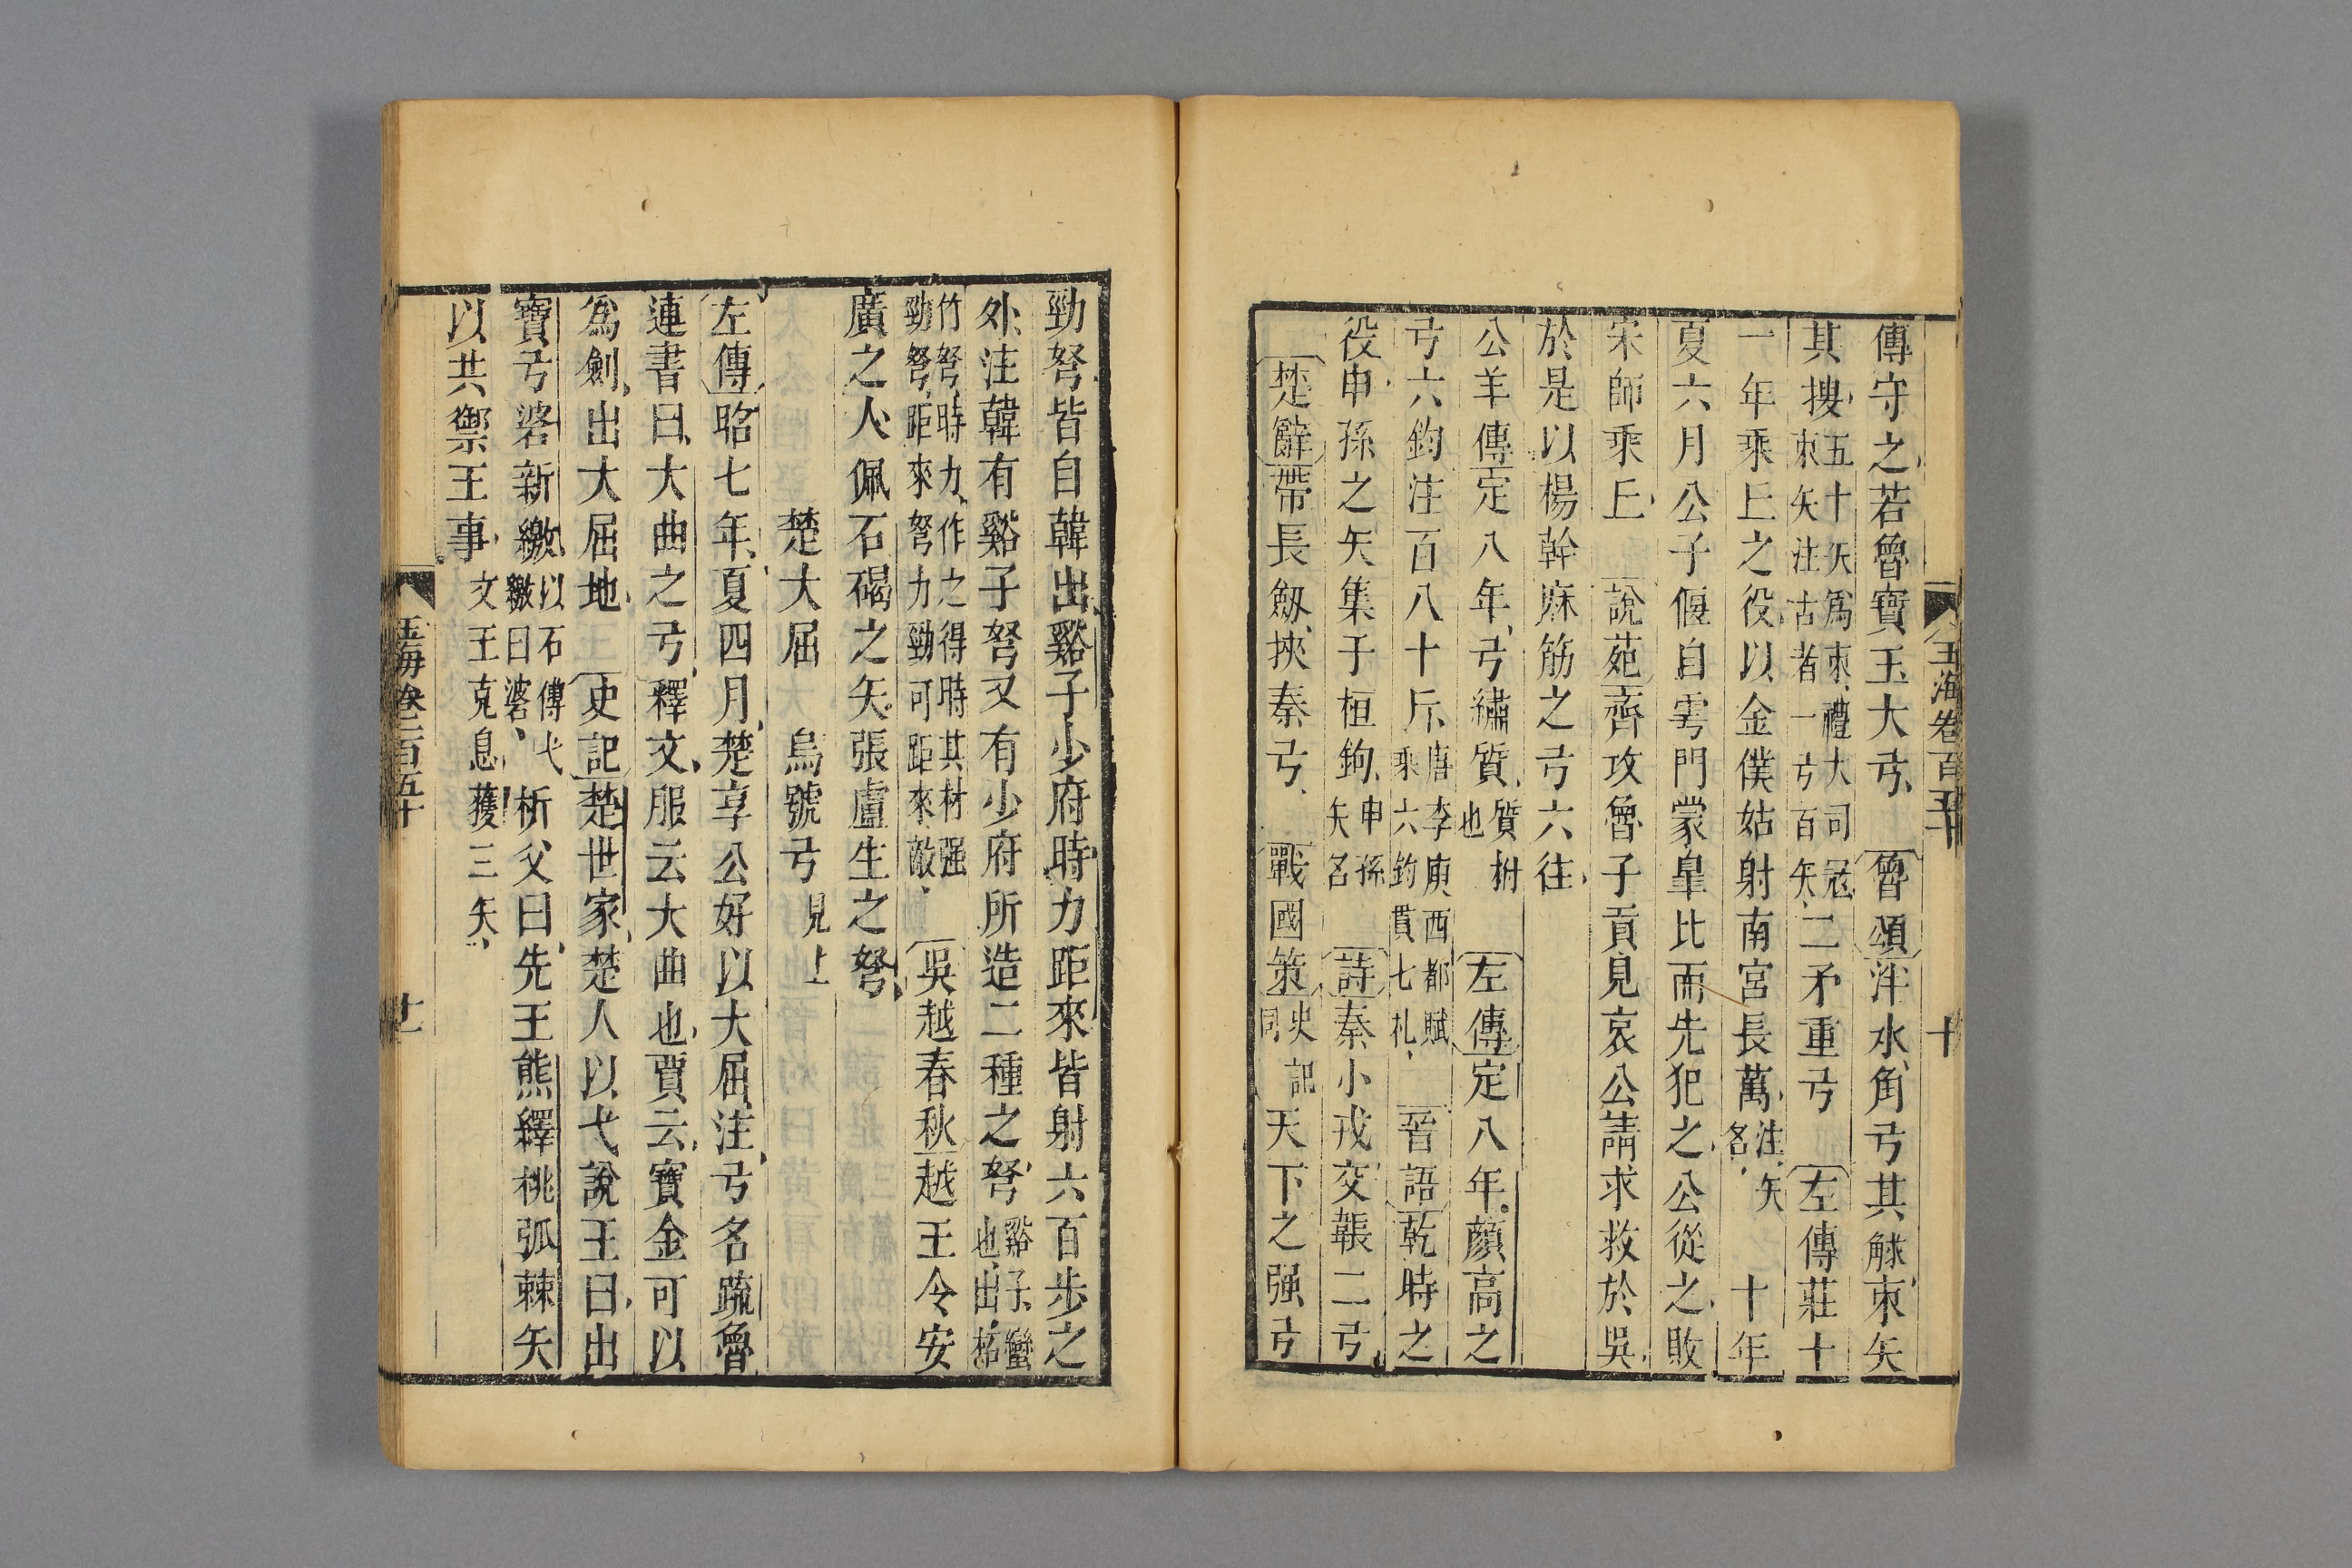 玉海卷百五十
十
傳守之若魯寶玉大弓魯頌泮水角弓其觩束矢
其搜五十矢爲束禮大司冦束矢注古者一弓百矢二矛重弓左傳莊十
一年乘丘之役以金僕姑射南宮長萬注矢名十年
夏六月公子偃自雩門蒙皐比而先犯之公從之敗
宋師乘丘說苑齊攻魯子貢見哀公請求救於吳
於是以楊幹麻筋之弓六往
公羊傳定八年弓繡質質拊也左傳定八年顏高之
弓六鈞注百八十斤唐李庾西都賦乘六鈞貫七札晉語乾時之
役申孫之矢集于桓鉤申孫矢名詩秦小戎交韔二弓
楚辭帶長劔挾秦弓戰國策史記同天下之强弓
勁弩皆自韓出谿子少府時力距來皆射六百步之
外注韓有谿子弩又有少府所造二種之弩谿子蠻也出柘
竹弩時力作之得時其材强勁弩距來弩力勁可距來敵吳越春秋越王令安
廣之人佩石碣之矢張盧生之弩
楚大屈　烏號弓見上
左傳昭七年夏四月楚享公好以大屈注弓名疏魯
連書曰大曲之弓釋文服云大曲也賈云寶金可以
爲劍出大屈地史記楚世家楚人以弋說王曰出
寶弓碆新繳以石傅弋繳曰碆析父曰先王熊繹桃弧棘矢
以共禦王事文王克息獲三矢
玉海卷百五十
十一